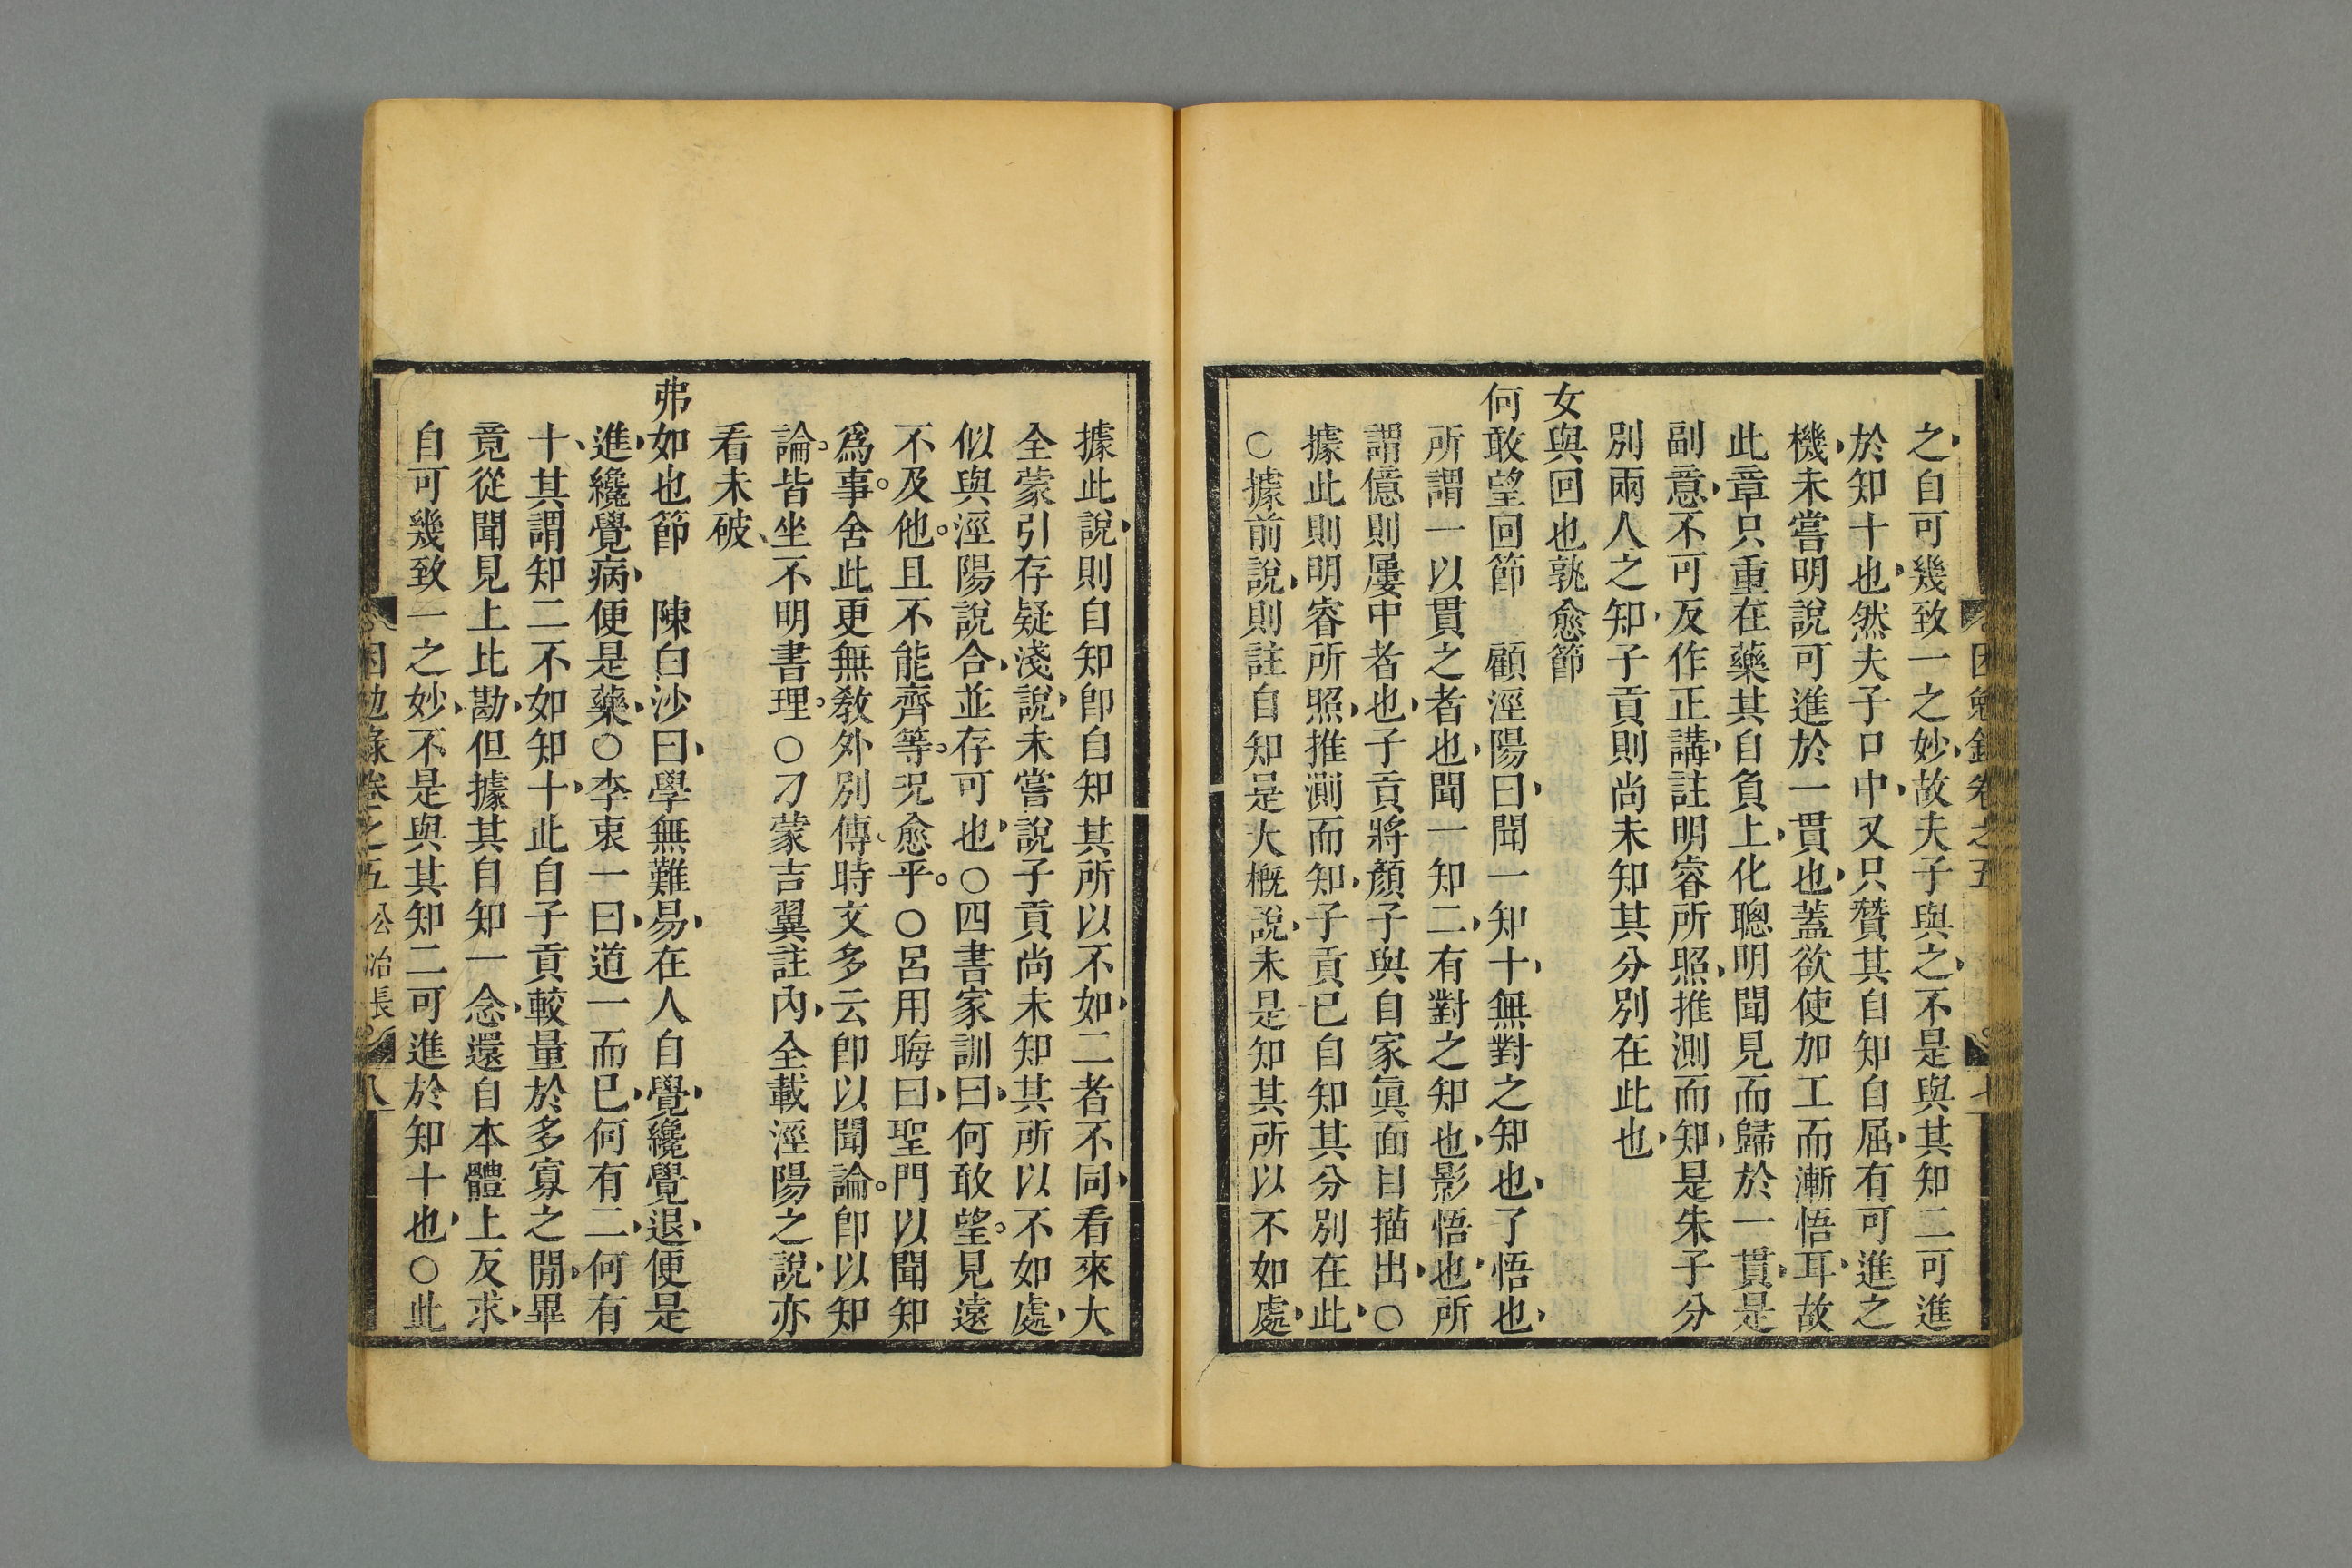 之自可幾致一之妙故夫子與之不是與其知二可進
於知十也然夫子口中又只贊其自知自屈有可進之
機未嘗明說可進於一貫也蓋欲使加工而漸悟耳故
此章只重在藥其自負上化聰明聞見而歸於一貫是
副意不可反作正講註明睿所照推測而知是朱子分
別兩人之知子貢則尚未知其分別在此也
女與回也孰愈節
何敢望回節　顧涇陽曰聞一知十無對之知也了悟也
所謂一以貫之者也聞一知二有對之知也影悟也所
謂億則屢中者也子貢將顏子與自家眞面目描出○
據此則明睿所照推測而知子貢已自知其分別在此
○據前說則註自知是大槪說未是知其所以不如處
據此說則自知卽自知其所以不如二者不同看來大
全蒙引存疑淺說未嘗說子貢尚未知其所以不如處
似與涇陽說合並存可也○四書家訓曰何敢望。見遠
不及他。且不能齊等。況愈乎。○呂用晦曰聖門以聞知
爲事。舍此更無敎外別傳時文多云卽以聞論。卽以知
論。皆坐不明書理。○刁蒙吉翼註內全載涇陽之說亦
看未破
弗如也節　陳白沙曰學無難易在人自覺纔覺退便是
進纔覺病便是藥○李衷一曰道一而已何有二何有
十其謂知二不如知十此自子貢較量於多寡之閒畢
竟從聞見上比勘但據其自知一念還自本體上反求
自可幾致一之妙不是與其知二可進於知十也○此
困勉錄卷之五　公冶長　八